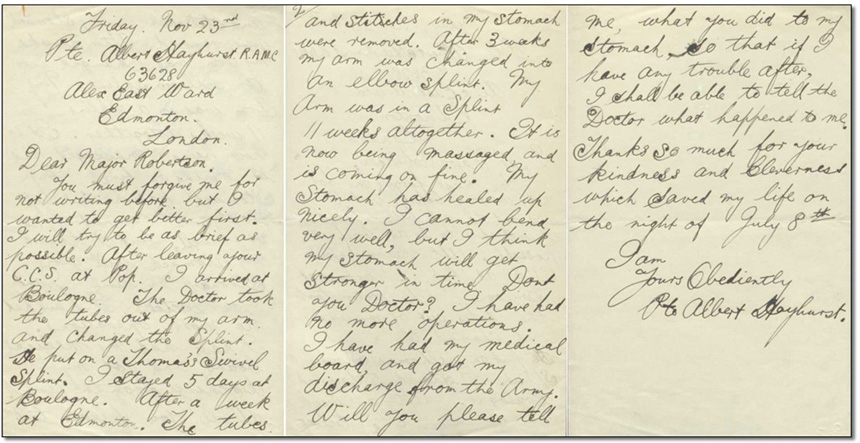 Friday. Nov 23rd
Pte. Albert Hayhurst R.A.M.C
63628
Alex East Ward
Edmonton.
London.
Dear Major Robertson.
You must forgive me for
not writing before but I
wanted to get better first.
I will try to be as brief as
possible. After leaving your
C.C.S. at Pop. I arrived at
Boulogne. The Doctor took
the tubes out of my arm.
and changed the Splint.
He put on a Thomas's Swivel
Splint. I stayed 5 days at
Boulogne. After a week
at Edmonton. The tubes.
2/
and stitsches in my stomach
were removed. After 3 weeks
my arm was changed into
an elbow splint. My
Arm was in a Splint
11 weeks altogether. It is
now being massaged and
is coming on fine. My
Stomach has healed up
nicely. I cannot bend
very well, but I think
my stomach will get
Stronger in time. Dont
you Doctor? I have had
no more operations.
I have had my medical
board, and got my
discharge from the Army.
Will you please tell
me, what you did to my
Stomach, so that if I
have any trouble after,
I shall be able to tell the
Doctor what happened to me.
Thanks so much for your
kindness and Cleverness
which saved my life on
the night of July 8th
I am
Yours Obediently
Pte Albert Hayhurst.